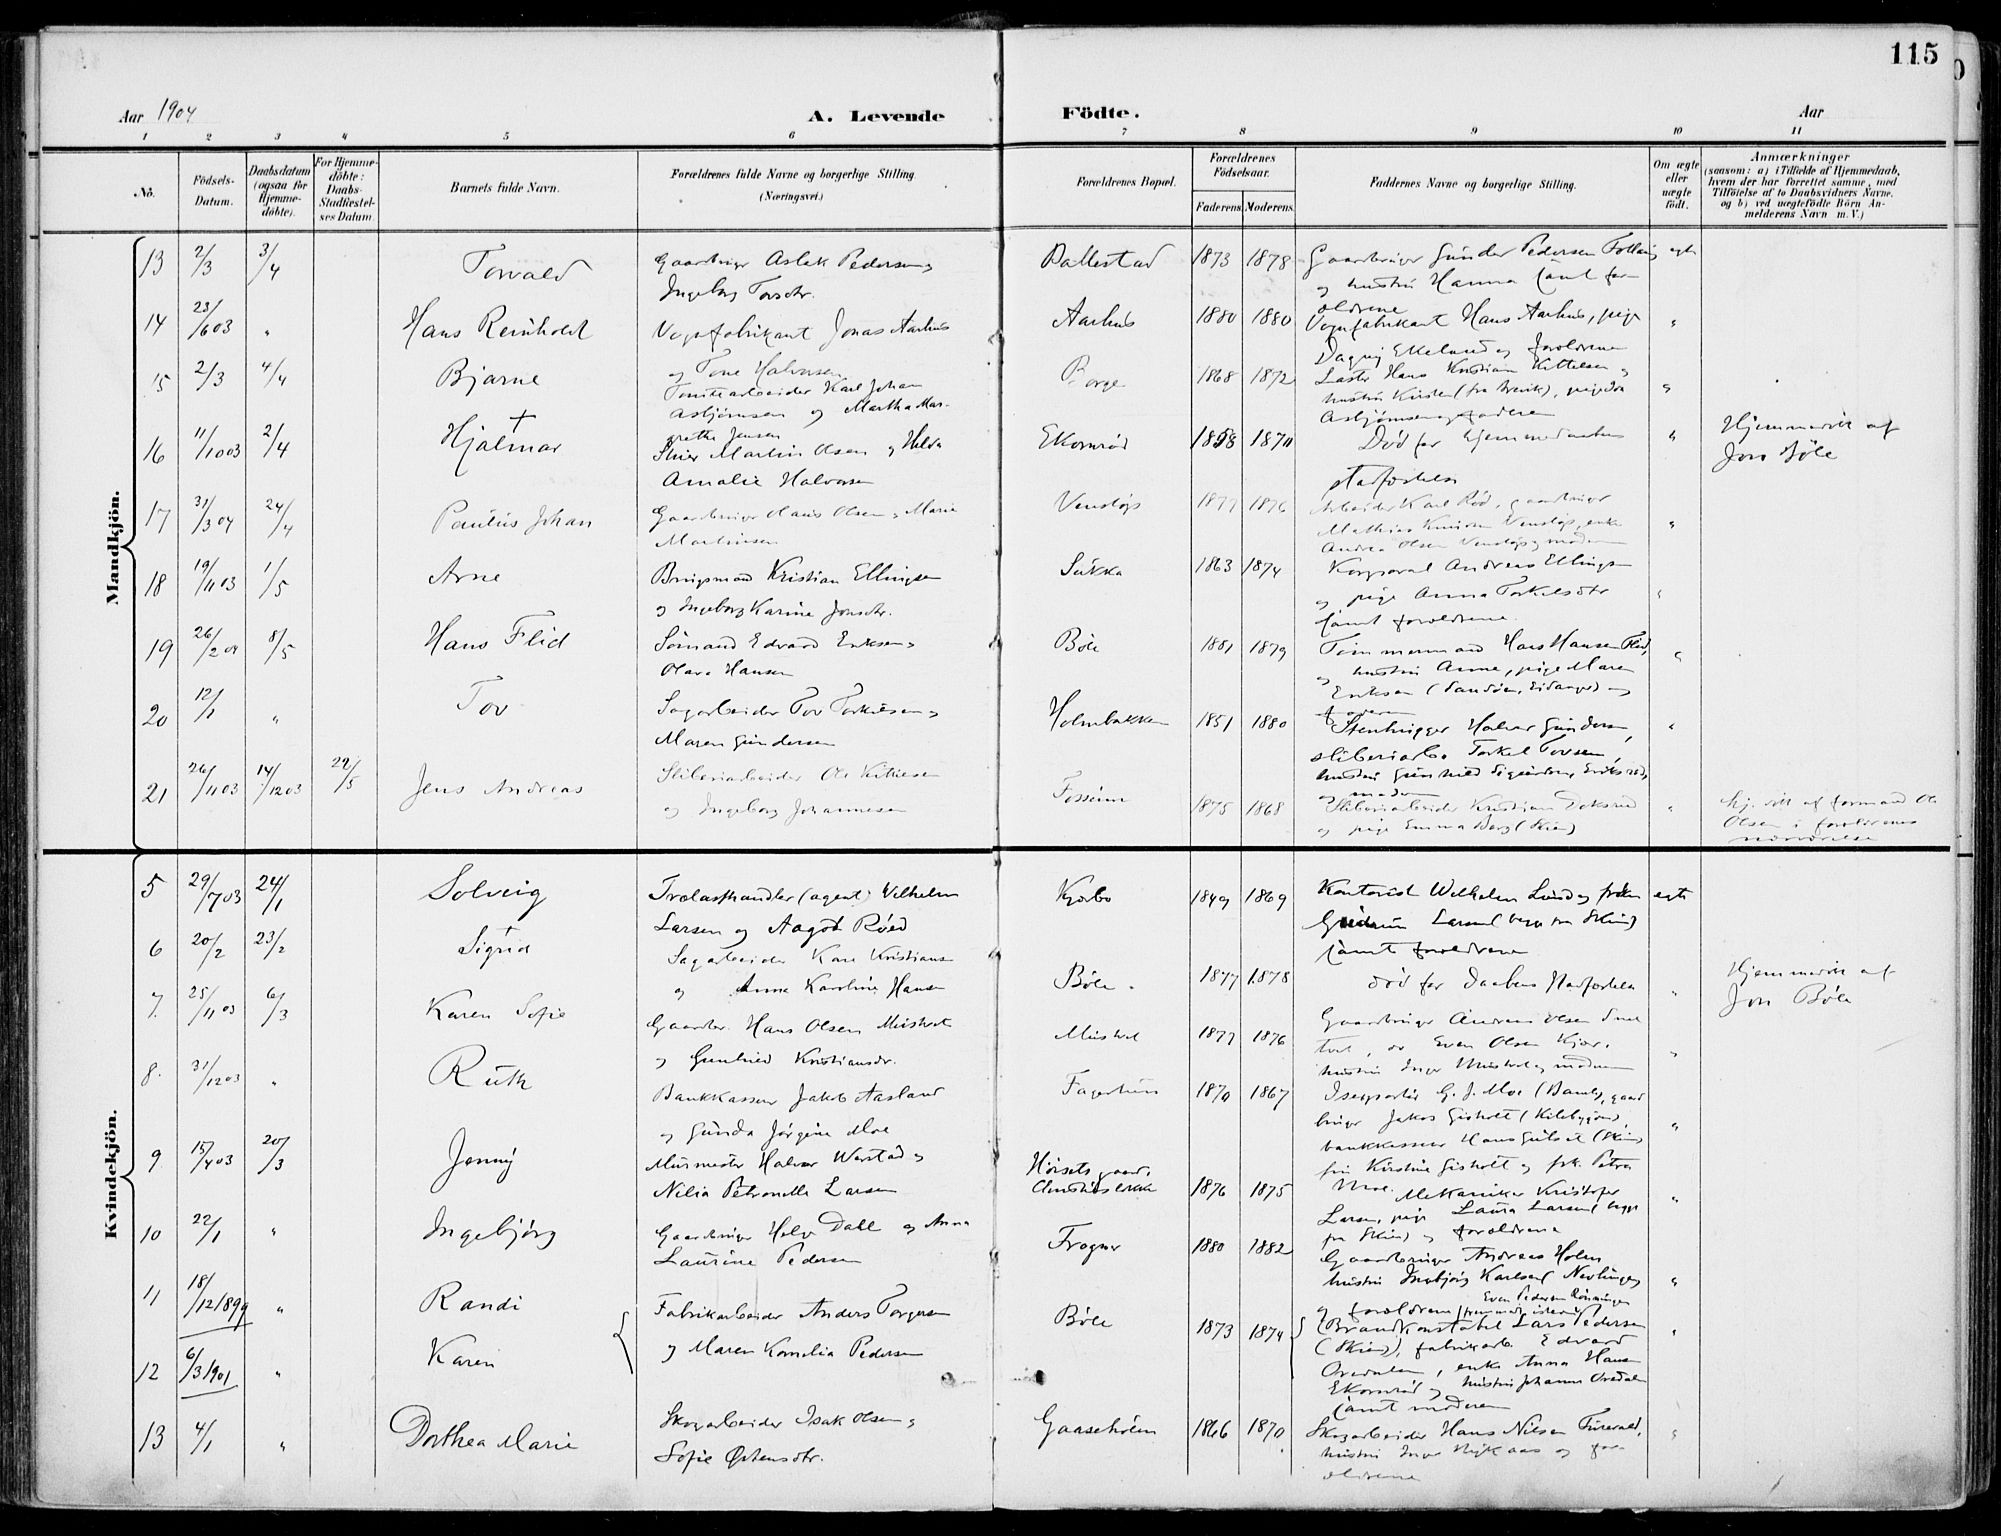 115
Aar 1904
A. Levende
Födte.
Aar
1 2 3 4 5 6 7 8 9 10 11
No.
Födsels-
Datum.
Daabsdatum
(ogsaa for
Hjemme-
döbte).
For Hjemme-
döbte:
Daabs-
Stadfæstel-
ses Datum.
Barnets fulde Navn.
Forældrenes fulde Navne og borgerlige Stilling.
(Næringsvei.)
Forældrenes Bopæl.
Forældrenes
Födselsaar.
Faderens. Moderens.
Faddernes Navne og borgerlige Stilling.
Om ægte
eller
uægte
födt.
Anmærkninger
(saasom: a) i Tilfælde af Hjemmedaab,
hvem der har forrettet samme, med
Tilföielse af to Daabsvidners Navne,
og b) ved uægtefödte Börn An-
melderens Navn m. V.)
Mandkjön.
13 2/3 3/4 Torvald Gaardbruger Aslak Pedersen og
Ingeborg Torsdtr.
Ballestad 1873 1878 Gaardbruger Gunder Pedersen
og hustru Hanna samt for-
ældrene
egte
14 23/6 03 " Hans Reinholdt Vognfabrikant Jonas Aarhus
og Tone Halvorsen
Aarhus 1880 1880 Vognfabrikant Hans Aarhus, pige
Dagny Ekelund og forældrene
"
15 2/3 4/4 Bjarne Karl Johan
Asbjørnsen og Martha Mar-
grethe Jensen
Borge 1868 1872 Hans Kristian Kittelsen og
hustru Kirsten (fra Brevik), pige
Asbjørnsen og faderen
"
16 11/10 03 2/4 Hjalmar Martin Olsen og Helva
Amalie Halvorsen
Ekornrød 1858 1870 Død før hjemmedaabens
stadfæstelse
"
Hjemmedøbt af
Jon Bøle
17 31/3 04 24/4 Paulus Johan Gaardbruger Hans Olsen og Marie
Martinsen
Venstøp 1877 1876 Arbeider Karl Rød, gaardbruger
Mathias Knudsen Venstøp, enke
Andrea Olsen Venstøp og moderen
"
18 19/11 03 1/5 Arne Brugsmand Kristian Ellingsen
og Ingeborg Karine Jonsdtr.
1863 1874 Korporal Andreas Ellingsen
og pige Anna Torkelsdtr
samt forældrene.
"
19 26/2 04 8/5 Hans Flid Sömand Edvard Eriksen og
Olava Hansen
Böle 1881 1879 Tömmermand Hans Hansen Flid,
og hustru Anne, pige Maren
Eriksen (Sandöen, Eidanger) og
faderen
"
20 12/1 " Tov Sagarbeider Tov Torkilsen og
Maren Gundersen
Holmbakken 1851 1880 Stenhugger Halvor Gundersen,
sliberiarb. Torkel Tovsen,
hustru Gunhild
og moderen
"
21 26/11 03 14/12 03 22/5 Jens Andreas Sliberiarbeider Ole Kittilsen
og Ingeborg Johannesen
Fossum 1875 1868 Sliberiarbeider Kristian
og pige Emma Berg (Skien)
"
hj. döbt af formand Ole
Olsen i forældrenes
nærværelse
Kvindekjön.
5 29/7 03 24/1 Solveig Trælasthandler (agent) Vilhelm
Larsen og Aagot Röed
Kjørbo 1849 1869 Kontorist Wilhelm Lund og frøken
Gudrun Larsen (begge fra Skien)
samt forældrene
egte
6 20/2 23/2 Sigrid Sagarbeider Karl Kristiansen
og Anna Karoline Hansen
Böle. 1877 1878 død før Daabens stadfæstelse
"
Hjemmedøbt af
Jon Böle
7. 25/11 03 6/3 Karen Sofie Gaardbr. Hans Olsen
og Gunhild Kristiansdr.
1877 1876 Gaardbruger Andreas Olsen
Even Olsen Kjær,
hustru Inger og moderen
"
8. 31/12 03 " Ruth Bankkasserer Jakob Aasland
og Gunda Jörgine Moe
Fagerheim 1870 1867 G. J. Moe (Bamble), gaard-
bruger Jakob Gisholt (Kilebygden),
bankkasserer Hans (Skien)
fru Kirstine Gisholt og frk. Petra
Moe.
"
9 15/4 03 20/3 Jenny Murmester Halvor Werstad og
Nilia Petronella Larsen
gaard,
1876 1875 Mekaniker Kristofer
Larsen, pige Laura Larsen (begge
fra Skien) og forældrene
"
10 22/1 " Ingebjörg Gaardbruger Helge Dahl og Anna
Laurine Pedersen
Frogner 1880 1882 Gaardbruger Andreas Holm
hustru Ingebjörg Karlsen
og forældrene
"
11 18/12 1899 " Randi Fabrikarbeider Anders Torgersen
og Maren Kornelia Pedersen
12 6/3 1901 " Karen
Böle 1873 1874 Even Pedersen Rönningen
Brandkonstabel Lars Pedersen
(Skien), fabrikarb. Edvard
Overdalen, enke Anna Hansen
Ekornrød og hustru Johanne
samt moderen
"
13 4/1 " Dorthea Marie Skogarbeider Isak Olsen og
Sofie Østensdtr.
Gaaseholm 1866 1870 Skogarbeider Hans Nilsen
hustru Inger og for-
ældrene
"